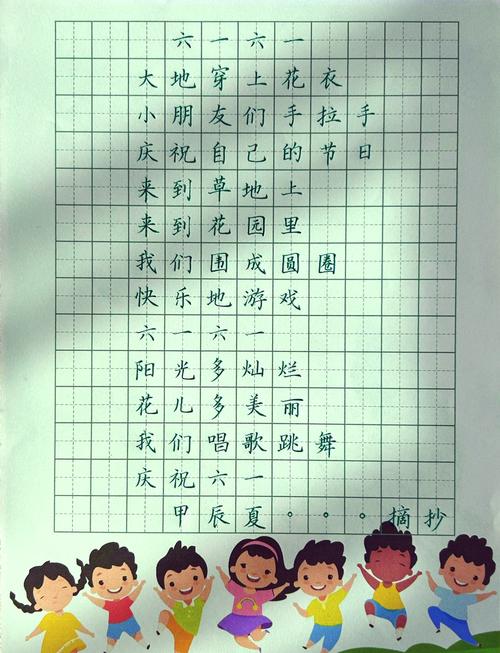 六一六一
大地穿上花衣
小朋友们手拉手
庆祝自己的节日
来到草地上
来到花园里
我们围成圆圈
快乐地游戏
六一六一
阳光多灿烂
花儿多美丽
我们唱歌跳舞
庆祝六一
甲辰夏。。。摘抄